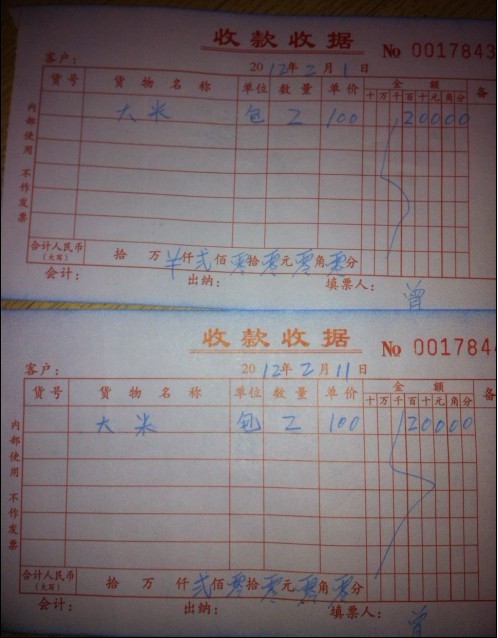 收款收据 No 0017843
客户： 2012年2月1日
货号 货物名称 单位 数量 单价 金额 备
十万千百十元角分
大米 包 2 100 20000
内部使用 不作发票
合计人民币(大写) 拾 万 ¥仟贰佰零拾零元零角零分
会计： 出纳： 填票人： 曾
收款收据 No 001784
客户： 2012年2月11日
货号 货物名称 单位 数量 单价 金额
十万千百十元角分
大米 包 2 100 20000
内部使用 不作发票
合计人民币(大写) 拾 万 仟贰佰零拾零元零角零分
会计： 出纳： 填票人： 曾